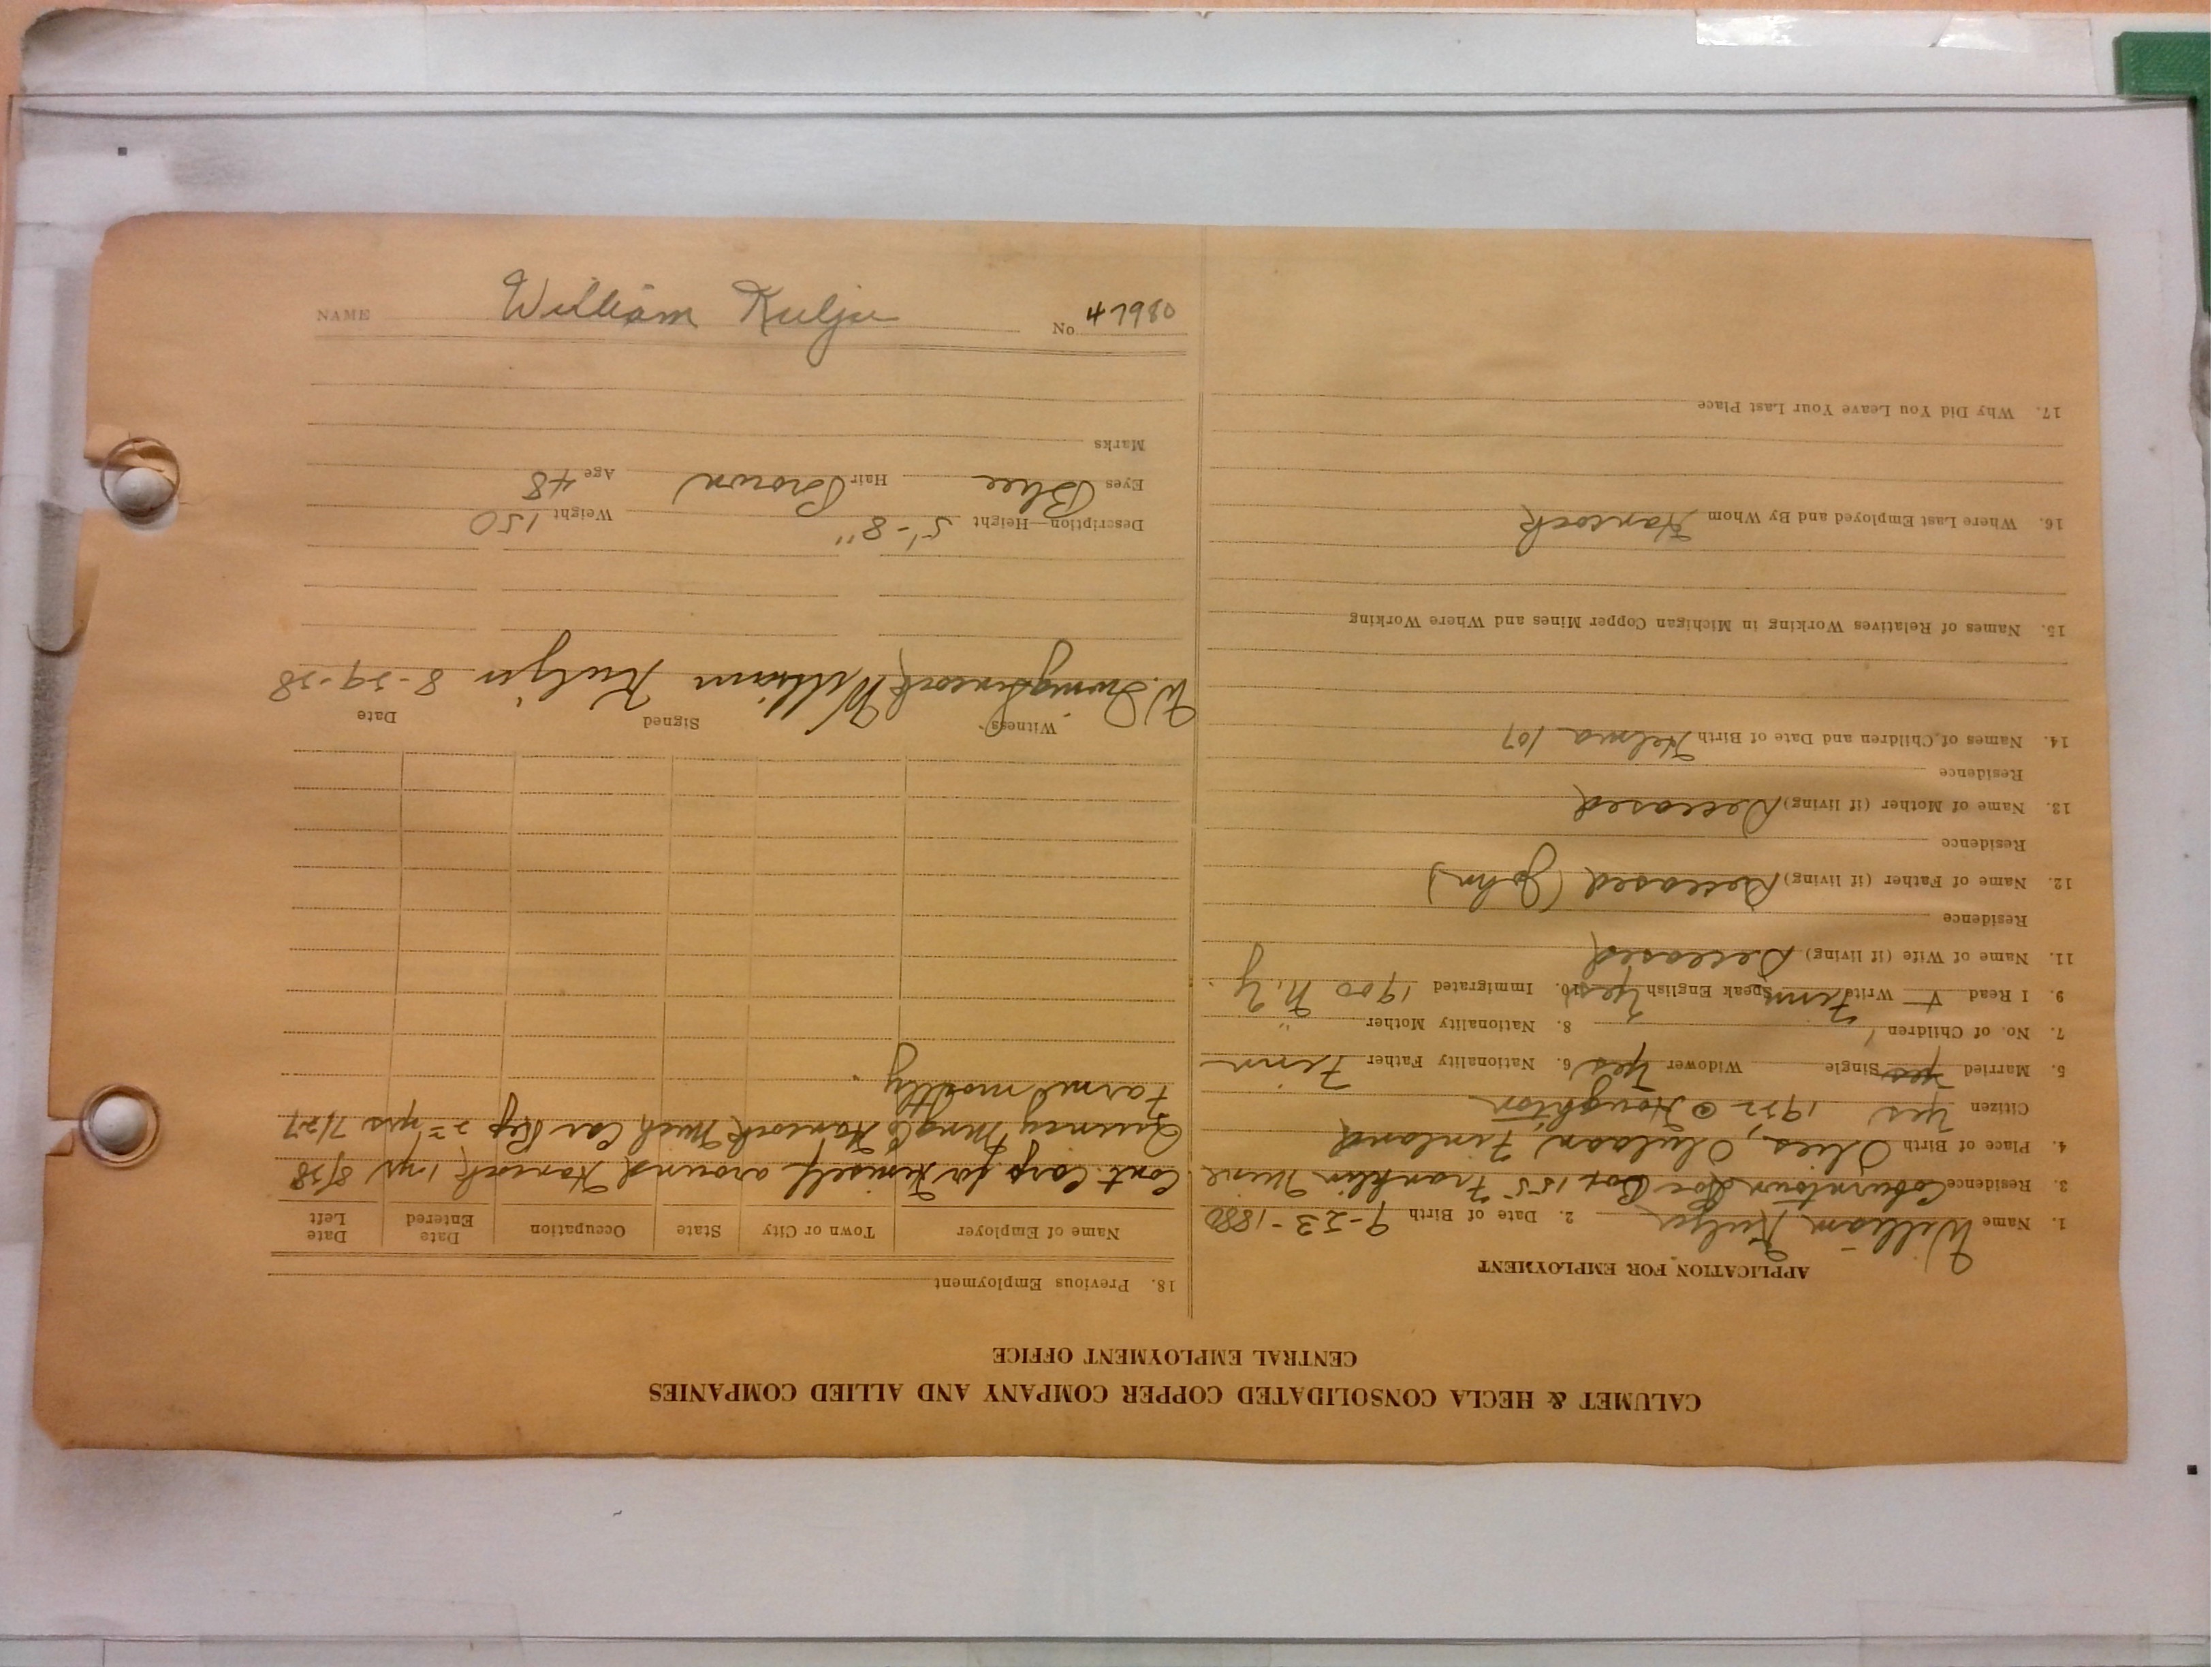 CALUMET & HECLA CONSOLIDATED COPPER COMPANY AND ALLIED COMPANIES
CENTRAL EMPLOYMENT OFFICE
APPLICATION FOR EMPLOYMENT
1. Name William Kulju 2. Date of Birth 9-23-1880
3. Residence Coburntown Loc Box 155 Franklin Mine
4. Place of Birth Olulaan, Finland
Citizen Yes 1922 @ Houghton
5. Married yes Single Widower Yes 6. Nationality Father Finn
7. No. of Children 1 8. Nationality Mother "
9. I Read + Write Finn Speak English Yes 10. Immigrated 1900 N.Y.
11. Name of Wife (if living) Deceased
Residence
12. Name of Father (if living) Deceased (John)
Residence
13. Name of Mother (if living) Deceased
Residence
14. Names of Children and Date of Birth Helma 107
15. Names of Relatives Working in Michigan Copper Mines and Where Working
16. Where Last Employed and By Whom Hancock
17. Why Did You Leave Your Last Place
18. Previous Employment
Name of Employer Town or City State Occupation Date Entered Date Left
Cont. Carp for Himself around Hancock 1 yr 8/28
Quincy Mng Co Hancock Mich Car Rep 22 yrs 7/27
Farmed mostly.
Witness Signed Date
W. William Kulju 8-29-28
Description—Height 5'-8" Weight 150
Eyes Blue Hair Brown Age 48
Marks
NAME William Kulju No 47980